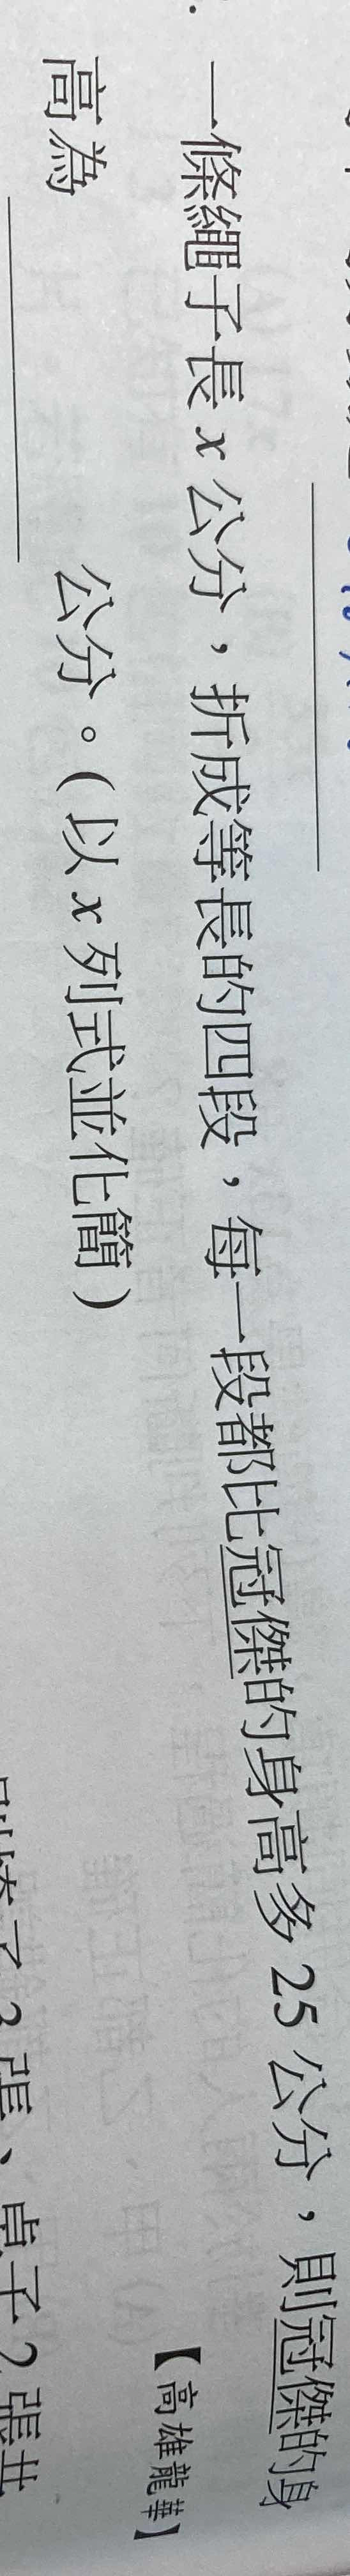 一條繩子長 x 公分，折成等長的四段，每一段都比冠傑的身高多 25 公分，則冠傑的身
高為＿＿＿＿＿＿公分。( 以 x 列式並化簡 )
【高雄龍華】
了 3 張、桌子 2 張共